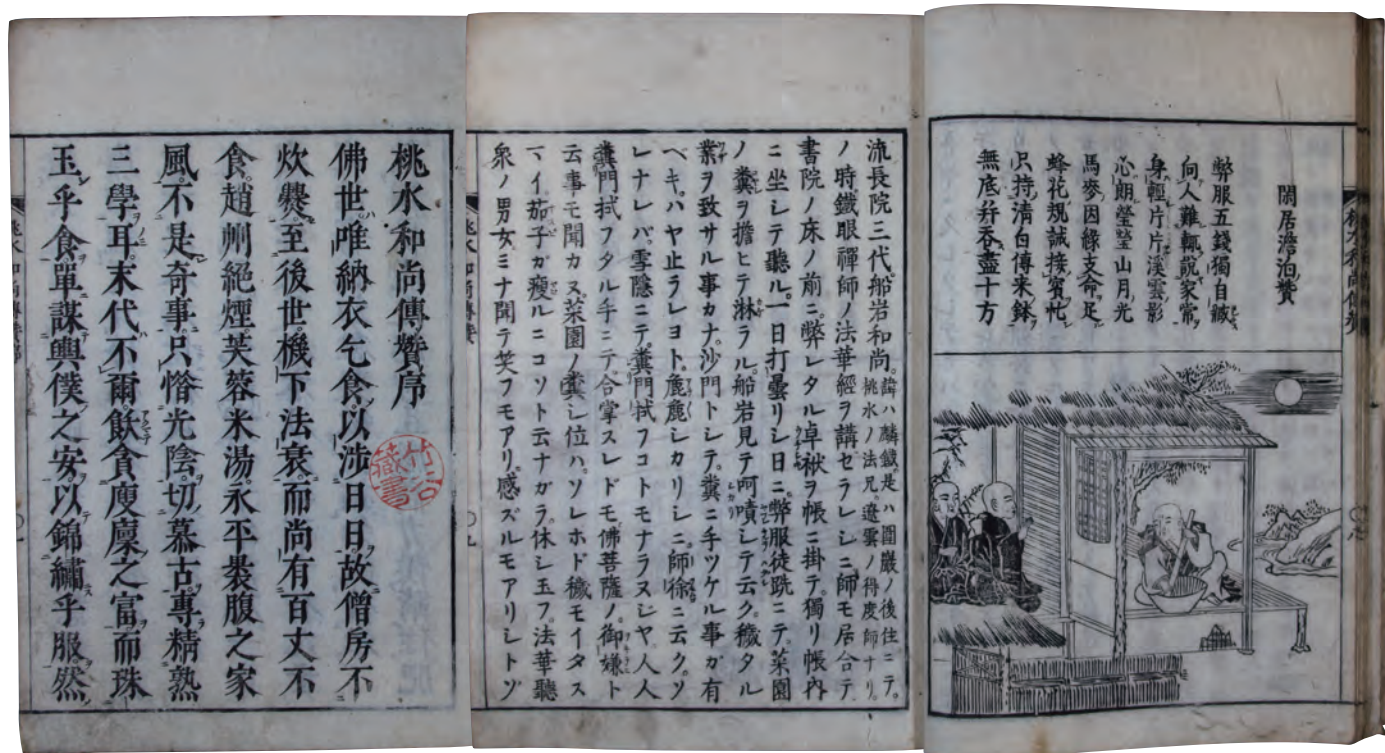 閑居澹泊贊
弊服五錢獨自誠
向人難輙說家常
身輕片片溪雲影
心朗瑩瑩山月光
馬麥因緣支命足
蜂花規誡接賓忙
只持清白傳来鉢
無底幷吞盡十方
桃水和尚傳贊
流長院三代船岩和尚。諱ハ麟鉄。是ハ圍巖ノ後住ニテ。桃水ノ法兄。遼雲ノ得度師ナリ。
ノ時。鐵眼禪師ノ法華經ヲ講セラレシニ。師モ居合テ。
書院ノ床ノ前ニ。弊レタル卓袱ヲ帳ニ掛テ。獨リ帳內
ニ坐シテ聽ル。一日打曇リシ日ニ。弊服徒跣ニテ。菜園
ノ糞ヲ擔ヒテ淋ラル。船岩見テ呵嘖シテ云ク。穢タル
業ヲ致サル事カナ。沙門トシテ。糞ニ手ツケル事カ有
ベキ。ハヤ止ラレヨト。麁麁シカリシニ。師徐ニ云ク。ソ
レナレバ。雪隱ニテ。糞門拭フコトモナラヌシヤ。人人
糞門拭フタル手ニテ合掌スレドモ。佛菩薩ノ。御嫌ト
云事モ聞カヌ。菜園ノ糞シ位ハ。ソレホド穢モイタス
マイ。茄子ガ瘦ルニコソト云ナガラ。休シ玉フ。法華聽
衆ノ男女。ミナ聞テ笑フモアリ。感ズルモアリシトゾ
桃水和尚傳贊序
佛世。唯納衣乞食。以涉日日。故僧房不
炊爨。至後世。機下法衰。而尚有百丈不
食。趙州絕煙。芙蓉米湯。永平褁腹之家
風。不是奇事。只惜光陰。切慕古。專精熟
三學耳。末代不爾。飲食廋廩之富。而珠
玉乎食單。謀輿僕之安。以錦繡乎服。然
竹冶藏書